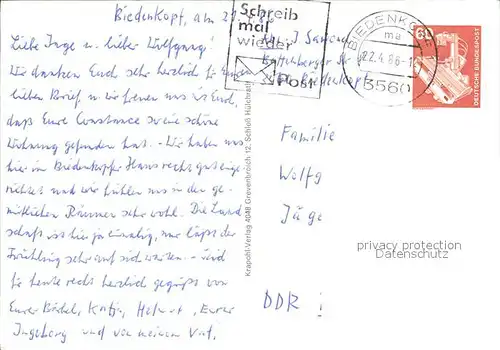 Biedenkopf, am 21.4.86
Liebe Inge u. lieber Wolfgang!
Wir danken Euch sehr herzlich für Euren
lieben Brief, u. wir freuen uns mit Euch,
daß Eure Constanze so eine schöne
Wohnung gefunden hat. – Wir haben uns
hier im Biedenkopfer Haus recht gut einge-
richtet und wir fühlen uns in den ge-
mütlichen Räumen sehr wohl. Die Land-
schaft ist hier ja einmalig, nur läßt der
Frühling sehr auf sich warten. – Seid
für heute recht herzlich gegrüßt von
Eurer Bärbel, Katja, Helmut, Eurer
Ingeborg und von meinem Vati.
Krapohl-Verlag 4048 Grevenbroich 12, Schloß Hülchrath
Schreib
mal
wieder
Post
BIEDENKOPF
ma
22.4.86-1
3560
60
DEUTSCHE BUNDESPOST
Familie
Wolfg
DDR !
privacy protection
Datenschutz